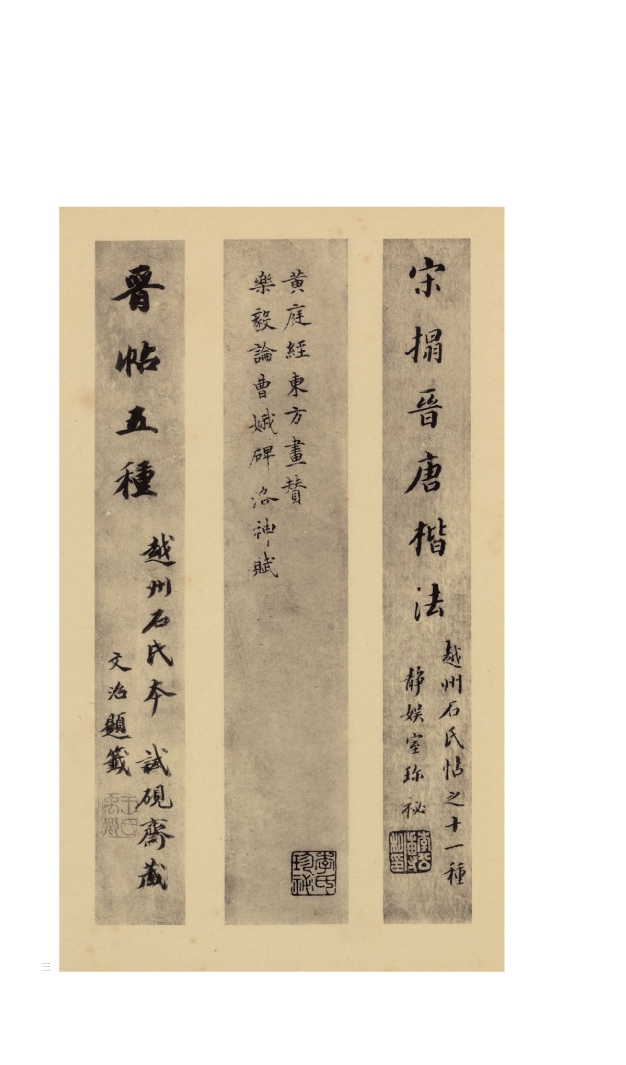 宋搨晉唐楷法
越州石氏帖之十一種
靜娛室珎祕
黃庭經東方畫贊
樂毅論曹娥碑洛神〻賦
李氏珍秘
晉帖五種
越州石氏本 試硯齋藏
文治題籤
王氏禹卿
三